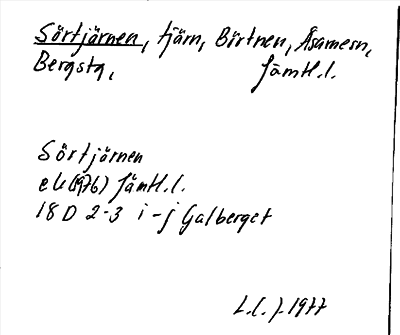 Sörtjärnen, tjärn, Börtnen, Åsarnesn,
Bergstg, Jämtl.l.
Sörtjärnen
ek(1976) Jämtl.l.
18 D 2-3 i-j Galberget
L.L. J. 1977